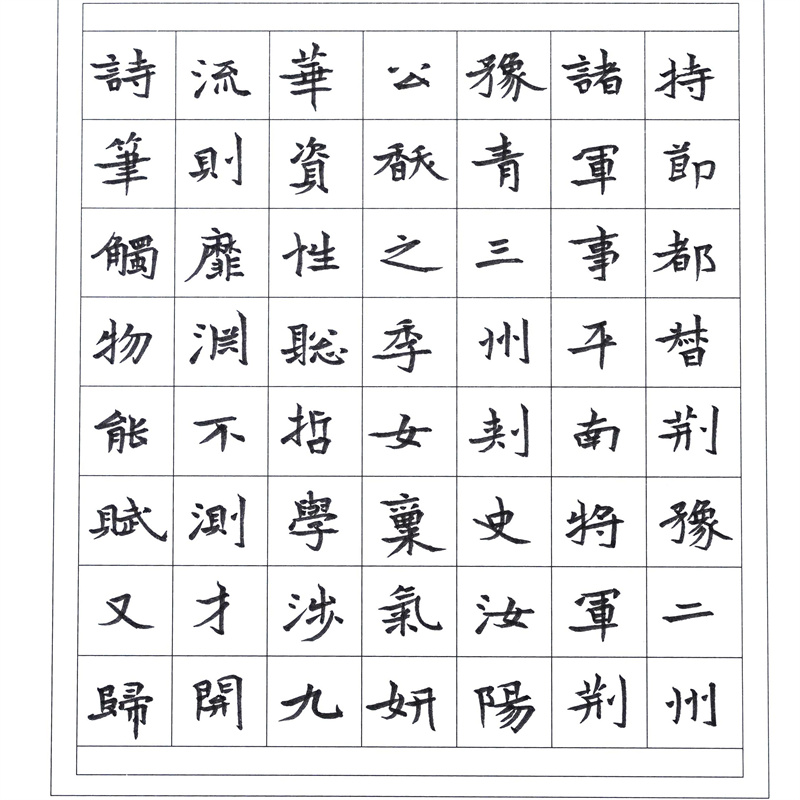 持節都督荊豫二州
諸軍事平南將軍荊
豫青三州刾史汝陽
公之季女稟氣妍
華資性聡哲學涉九
流則靡淵不測才開
詩筆觸物能賦又歸